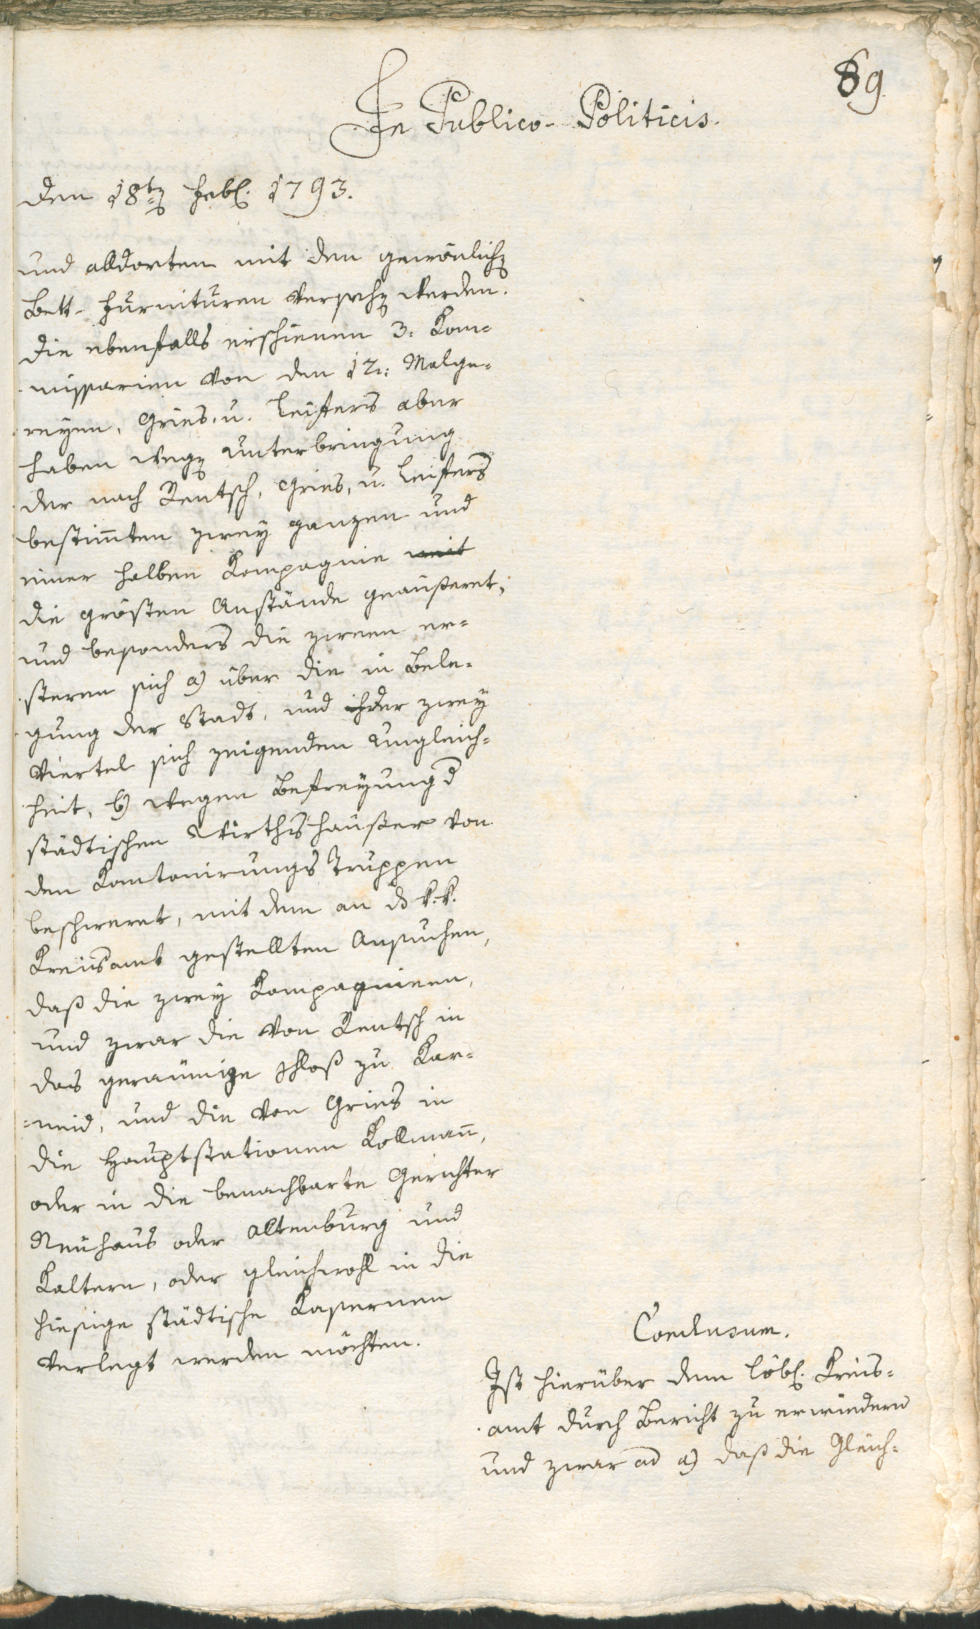 89
In Publico-Politicis.
den 18tn Febl. 1793.
und alldorten mit den gewönlichn
Bett-Furnituren versechn werden.
Die ebenfalls erschienen 3: Kom=
missarien von den 12: Malge=
reyen, Gries, u. Leifers aber
haben wegn Unterbringung
der nach Rentsch, Gries, u. Leifers
bestimten zwey ganzen und
einer halben Kompagnie mit
die grösten Anstände geäußeret,
und besonders die zween er=
steren sich a) über die in Bele=
gung der Stadt, und der zwey
Viertel sich zeigenden Ungleich=
heit, b) wegen Befreyung d
städtischen Wirthshäußer von
den Kantonirungs Truppen
beschweret, mit dem an ds k. k.
Kreisamt gestellten Ansuchen,
daß die zwey Kompagnieen,
und zwar die von Rentsch in
das geräumige Schloß zu Kar=
=neid, und die von Gries in
die Hauptstationen Kollman̄,
oder in die benachbarte Gerichter
Neuhaus oder Altenburg und
Kaltern, oder gleichwohl in die
hiesige städtische Kasernen
verlegt werden möchten.
Conclusum.
Ist hierüber dem löbl. Kreis=
amt durch Bericht zu erwiedern
und zwar ad a) daß die Gleich=